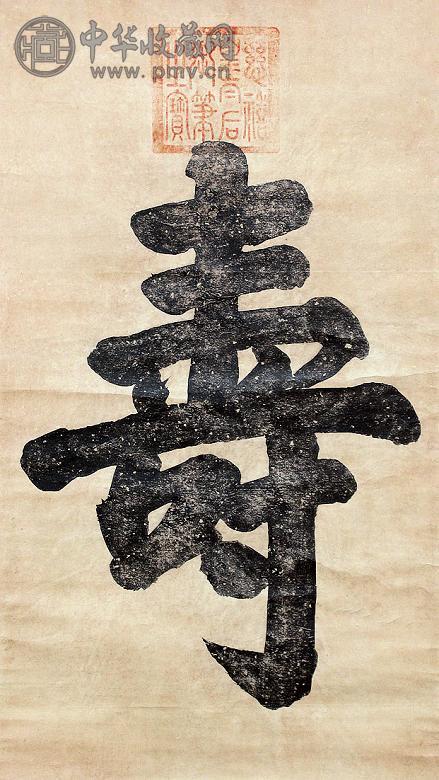 中华收藏网
www.pmv.cn
慈禧
皇后
御筆
之寶
壽